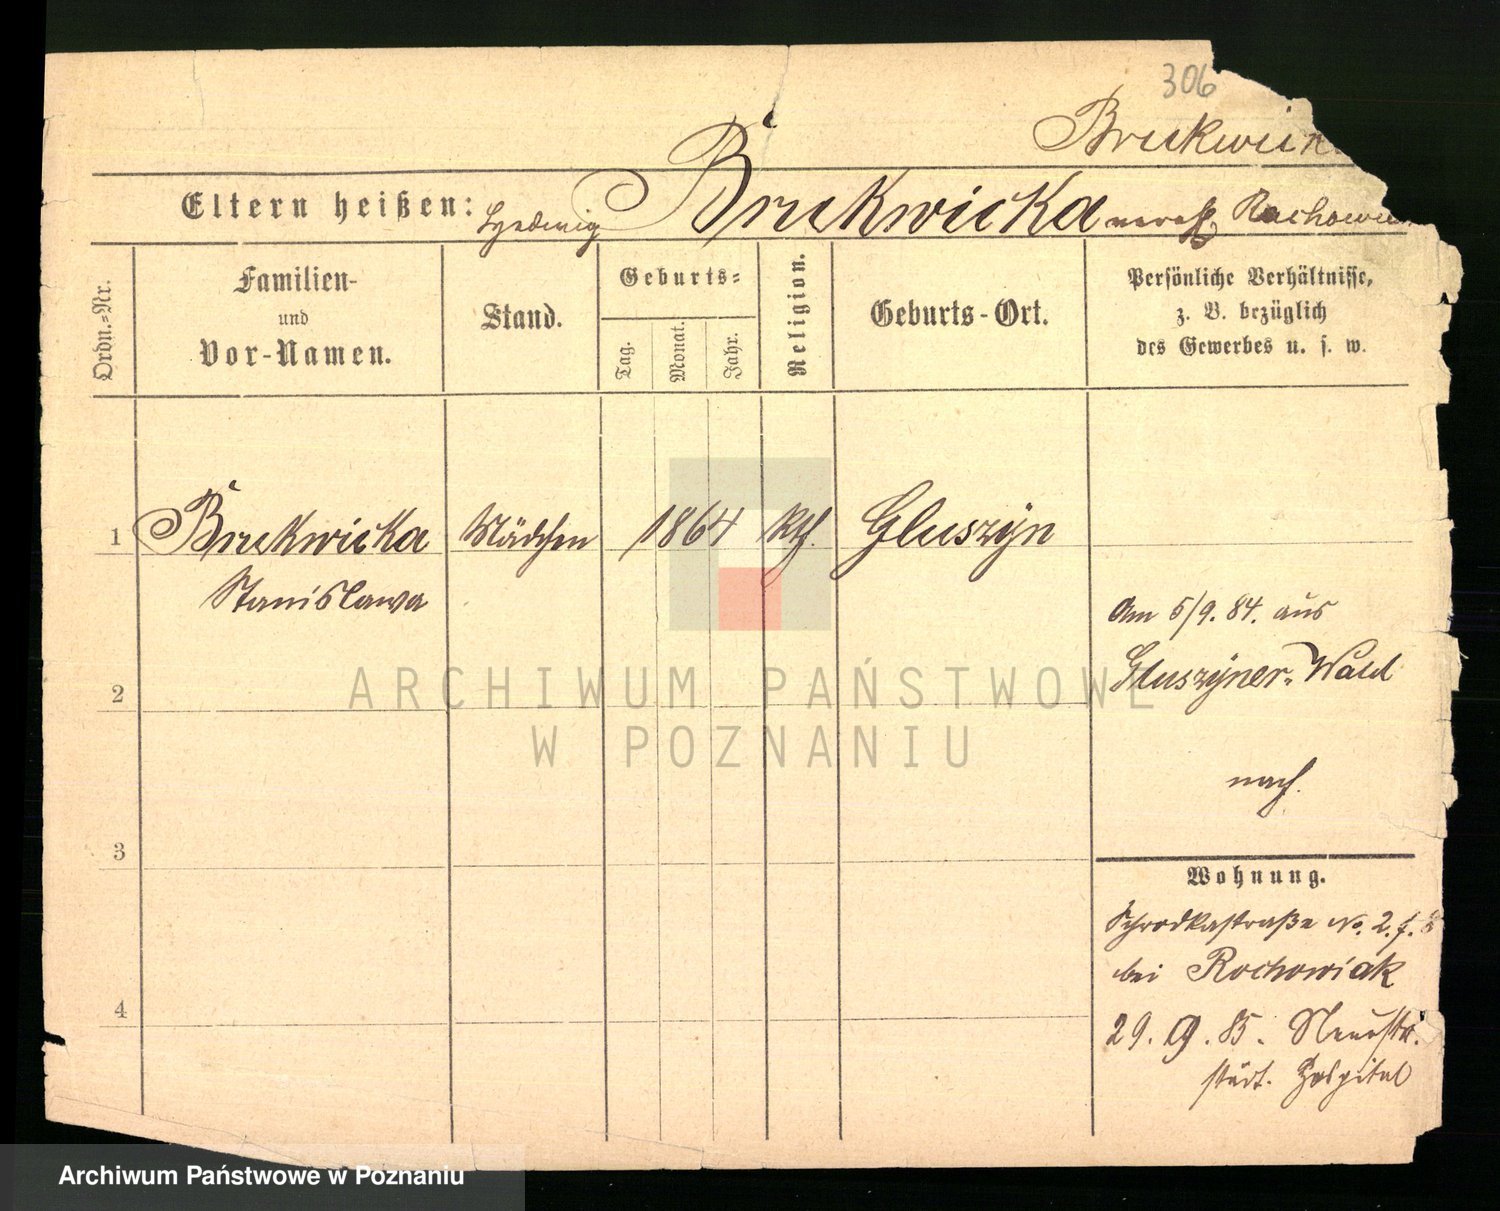 306
Brukwick
Eltern heißen: Hedwig Brukwicka verehl. Rochowia
Ordn.-Nr.
Familien-
und
Vor-Namen.
Stand.
Geburts-
Tag.
Monat.
Jahr.
Religion.
Geburts-Ort.
Persönliche Verhältnisse,
z. B. bezüglich
des Gewerbes u. s. w.
1 Brukwicka Mädchen 1864 kth. Gluszyn
Stanislawa
Am 5/9. 84. aus
2 Gluszyner-Wald
ARCHIWUM PAŃSTWOWE
W POZNANIU
nach.
3
Wohnung.
Schrodkastraße No. 2. f. 8
bei Rochowiak
4 29. 9. 85. Neuestr.
städt. Hospital
Archiwum Państwowe w Poznaniu